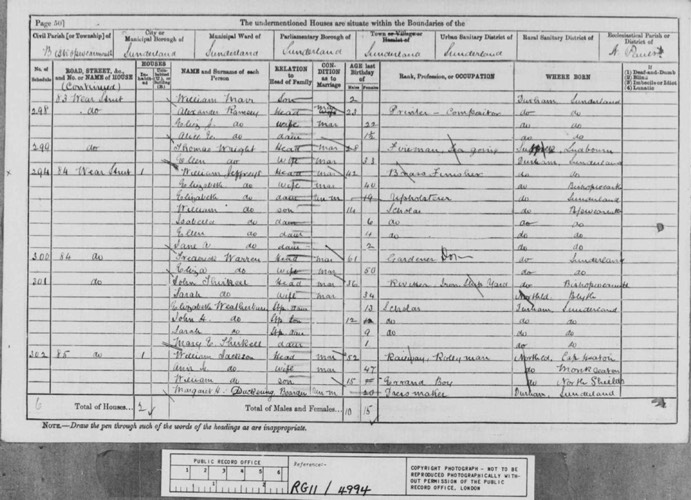 Page 50]
The undermentioned Houses are situate within the Boundaries of the
Civil Parish [or Township] of
City or Municipal Borough of
Municipal Ward of
Parliamentary Borough of
Town or Village or Hamlet of
Urban Sanitary District of
Rural Sanitary District of
Ecclesiastical Parish or District of
Bishopwearmouth Sunderland Sunderland Sunderland Sunderland Sunderland
No. of Schedule
ROAD, STREET, &c., and No. or NAME of HOUSE
HOUSES
NAME and Surname of each Person
RELATION to Head of Family
CONDITION as to Marriage
AGE last Birthday of
Rank, Profession, or OCCUPATION
WHERE BORN
(1) Deaf-and-Dumb
(2) Blind
(3) Imbecile or Idiot
(4) Lunatic
(Continued)
Males Females
83 Wear Street William Son 2 Durham Sunderland
298 do Alexander Head Mar 23 Printer - Compositor do do
do wife Mar 22 do do
Alice do daur do do
299 do Thomas Wright Head Mar 28 Fireman,
Ellen do Wife Mar 33 Durham, Sunderland
84 Wear Street 1 William Head Mar 42 Brass Finisher do do
Elizabeth do Wife Mar 40 do
Elizabeth do daur Unm 19 Upholsterer do Sunderland
William do son 14 Scholar do
Isabella do daur 6 do do do
Ellen do daur 4 do do do
Jane A do daur 2 do do
300 84 do Frederick Warren Head Mar 61 Gardener do Sunderland
Eliza do Wife 50 do do
301 do John Thirkell Head Mar 36 Riveter Iron Ship Yard do
Sarah do wife Mar 34 Northld. Blyth
Elizabeth 13 Scholar Durham, Sunderland
John A. do 12 do do do
Sarah do 9 do do do
Mary E. Thirkell daur 1 do do
302 85 do 1 William Jackson Head Mar 52 Railway, Northld,
Ann do wife Mar 47 do
William do son 15 Errand Boy do North Shields
Margaret H. Unm 20 Durham, Sunderland
6 Total of Houses... 3 Total of Males and Females... 10 15
NOTE.—Draw the pen through such of the words of the headings as are inappropriate.
PUBLIC RECORD OFFICE
1 2 3 4 5 6
Reference:-
RG11 / 4994
COPYRIGHT PHOTOGRAPH - NOT TO BE
REPRODUCED PHOTOGRAPHICALLY WITH-
OUT PERMISSION OF THE PUBLIC
RECORD OFFICE, LONDON